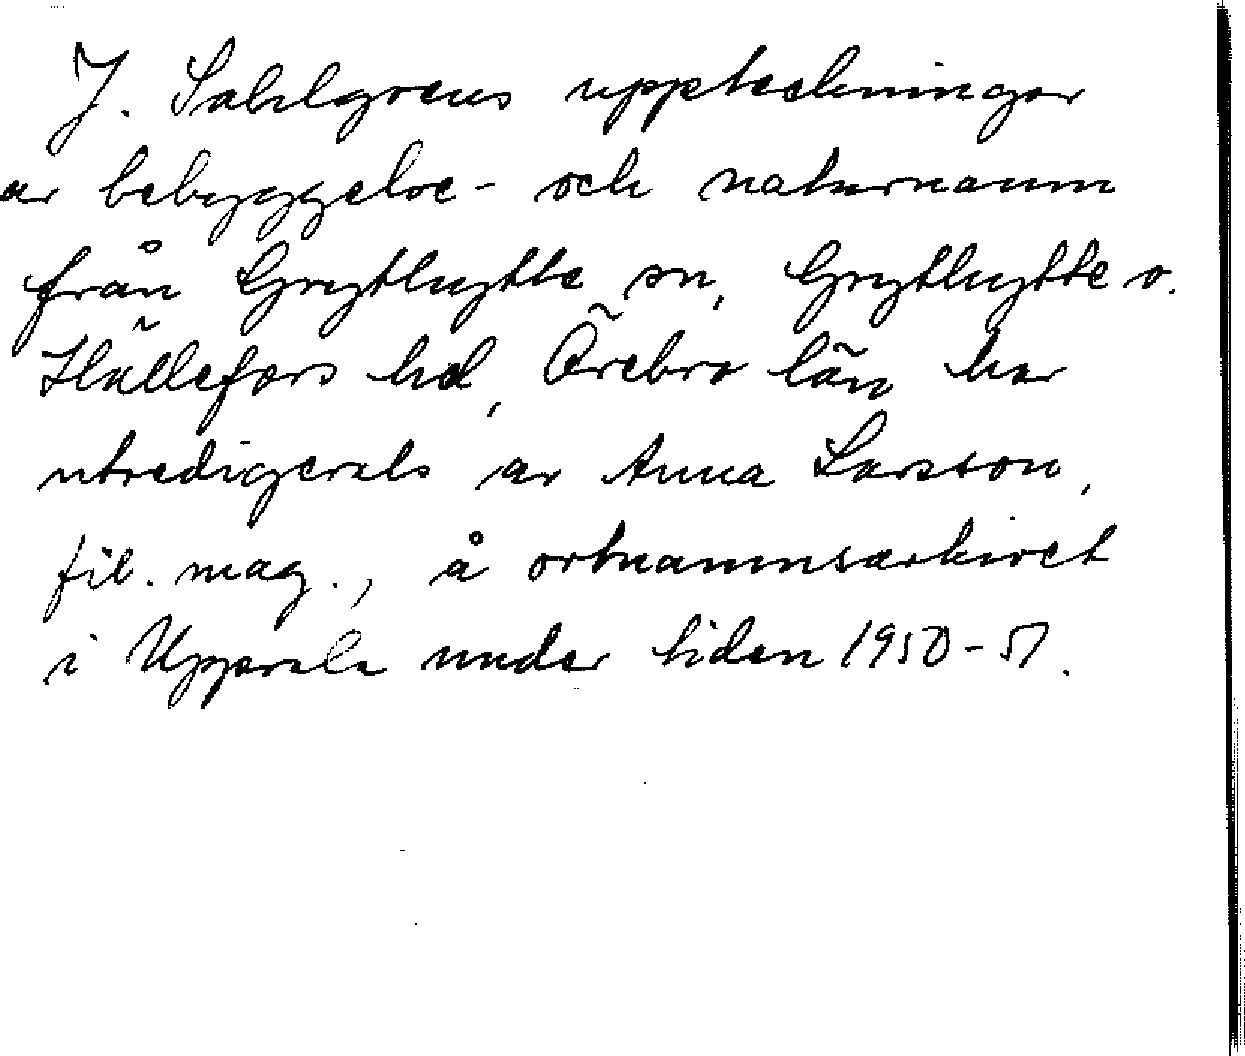 J. Sahlgrens uppteckningar
av bebyggelse- och naturnamn
från Grythytte sn, Grythytte o.
Hällefors hd, Örebro län har
utredigerats av Anna Larsson,
fil. mag., å ortnamnsarkivet
i Uppsala under tiden 1950-51.